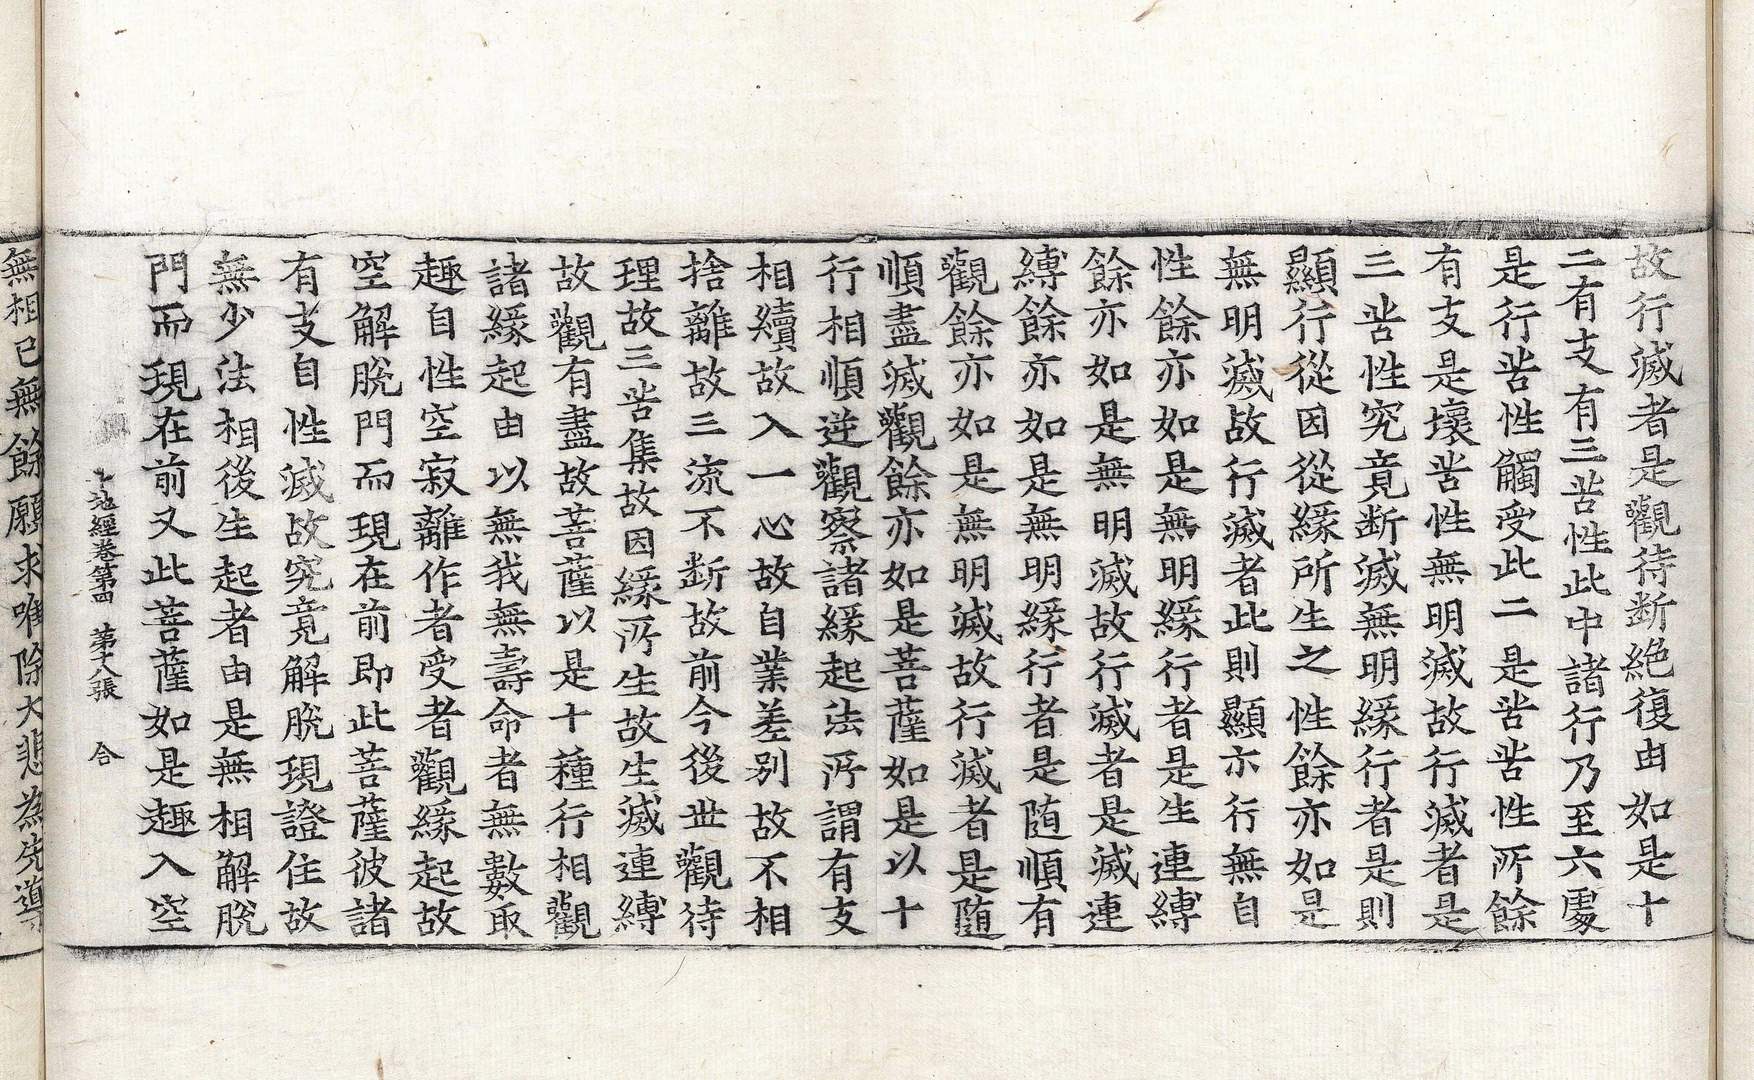 故行滅者是觀待断絶復由如是十
二有支有三苦性此中諸行乃至六處
是行苦性觸受此二是苦苦性所餘
有支是壞苦性無明滅故行滅者是
三苦性究竟断滅無明緣行者是則
顯行從因從緣所生之性餘亦如是
無明滅故行滅者此則顯示行無自
性餘亦如是無明緣行者是生連縛
餘亦如是無明滅故行滅者是滅連
縛餘亦如是無明緣行者是随順有
觀餘亦如是無明滅故行滅者是随
順盡滅觀餘亦如是菩薩如是以十
行相順逆觀察諸緣起法所謂有支
相續故入一心故自業差别故不相
捨離故三流不断故前今後世觀待
理故三苦集故因緣所生故生滅連縛
故觀有盡故菩薩以是十種行相觀
諸緣起由以無我無壽命者無數取
趣自性空寂離作者受者觀緣起故
空解脫門而現在前即此菩薩彼諸
有支自性滅故究竟解脫現證住故
無少法相後生起者由是無相解脫
門而現在前又此菩薩如是趣入空
十地經卷第四 第十八張 合
無相已無餘願求唯除大悲為先導